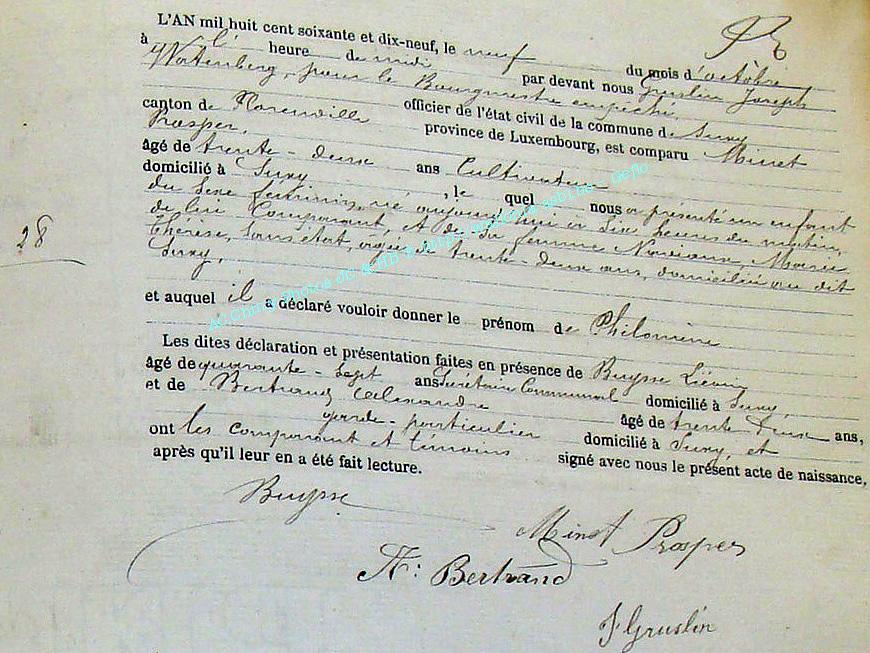 L'AN mil huit cent soixante et dix-neuf, le neuf du mois d'octobre
à l' heure de midi par devant nous Gruslin Joseph
Wortenberg, pour le Bourgmestre empêché,
officier de l'état civil de la commune de Suxy
canton de Florenville province de Luxembourg, est comparu Minet
Prosper,
âgé de trente-deux ans Cultivateur
domicilié à Suxy, le quel nous a présenté un enfant
du sexe féminin, né aujourd'hui à six heures du matin,
de lui Comparant, et de sa femme Marie
Thérèse, sans état, agée de trente-deux ans, domiciliée au dit
Suxy,
28
et auquel il a déclaré vouloir donner le prénom de Philomène
Les dites déclaration et présentation faites en présence de Buysse Liévin
âgé de quarante-sept ans Secrétaire Communal domicilié à Suxy,
et de Bertrand Alexandre âgé de trente-deux ans,
garde-particulier domicilié à Suxy, et
ont les comparant et témoins signé avec nous le présent acte de naissance,
après qu'il leur en a été fait lecture.
Buysse
Minet Prosper
A: Bertrand
J Gruslin